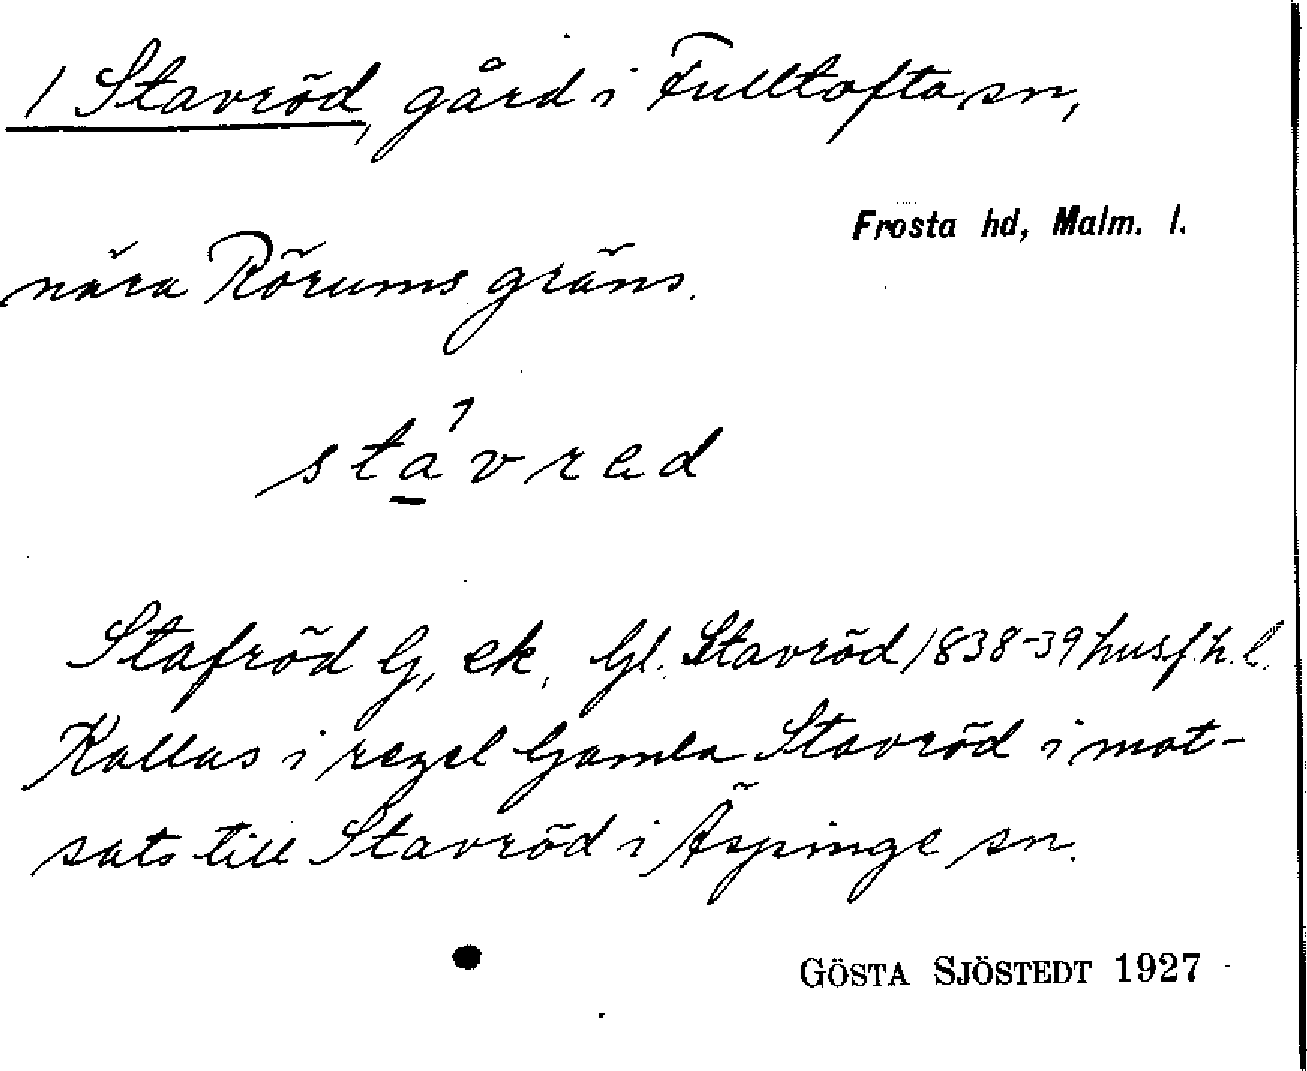 1 Stavröd, gård i Fulltofta sn,
Frosta hd, Malm. l.
nära Rörums gräns.
stávrad
Stafröd G, ek. Gl. Stavröd 1838-39 husf.h.l.
Kallas i regel Gamla Stavröd i mot-
sats till Stavröd i Äspinge sn.
GÖSTA SJÖSTEDT 1927